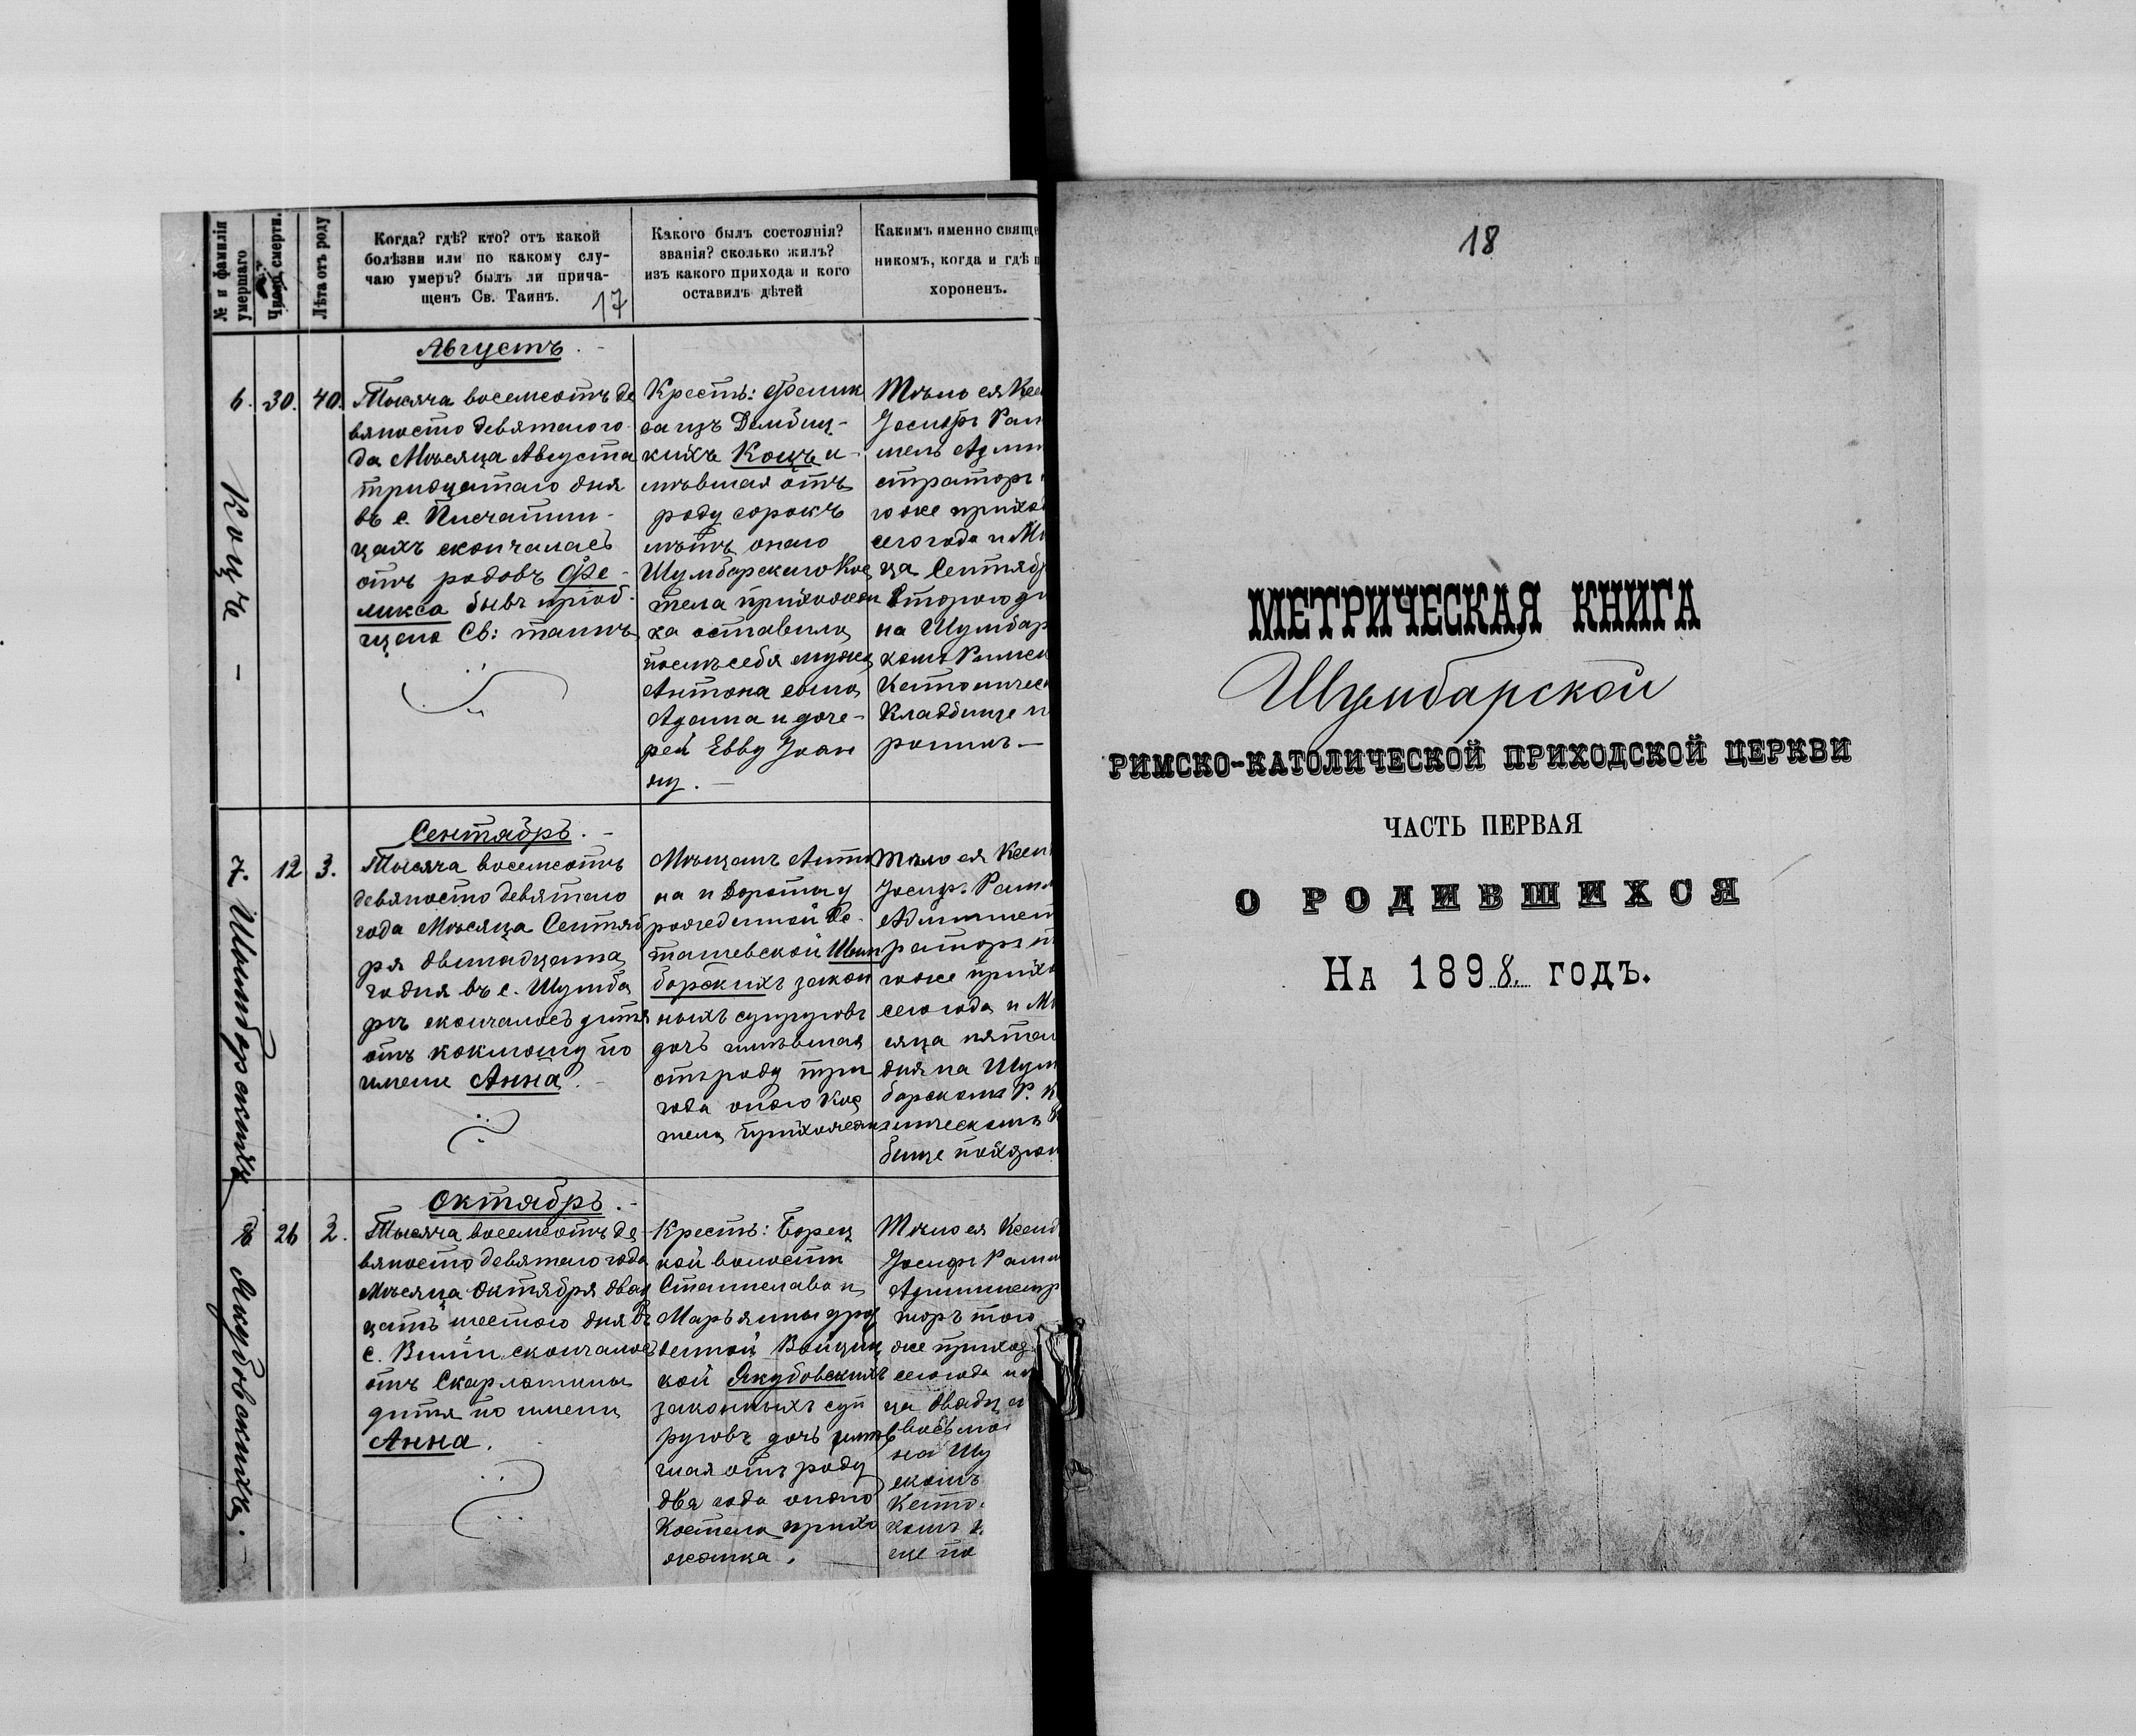 № и фамилія умершаго
Число смерти.
Лѣта отъ роду
Когда? гдѣ? кто? отъ какой
болѣзни или по какому слу-
чаю умеръ? былъ ли прича-
щенъ Св. Таинъ.
17
Какого былъ состоянія?
званія? сколько жилъ?
изъ какого прихода и кого
оставилъ дѣтей
Какимъ именно свяще
никомъ, когда и гдѣ п
хороненъ.
Августъ.
6.
Коцъ
30.
40.
Тысяча восемсотъ де
вяносто девятаго го
да Мѣсяца Августа
тридцатаго дня
въ с.
цахъ скончалась
отъ родовъ Фе-
ликса бывъ приоб-
щена Св: таинъ
Крестъ: Фелик
са изъ
кихъ Коцъ и-
мѣвшая отъ
роду сорокъ
лѣтъ онаго
Шумбарскаго Кос
тела прихожан
ка оставила
послѣ себя мужа
Антона сына
Адама и доче-
рей Евву Іоан
ну.
Тѣло ея Ксен
Іосифъ
Админи
страторъ
гоже прихо
сего года и Мѣ
ца Сентяб
Второго д
на Шумбар
комъ Римск
Католическ
Кладбище п
ронилъ
Сентябрь.
7. Шымборскихъ
12
3.
Тысяча восемсотъ
девяносто девятаго
года Мѣсяца Сентяб
ря двенадцата
го дня въ с. Шумба
рѣ скончалось дитя
отъ коклюшу по
имени Анна.
Мѣщанъ Анто
на и Дороты у
рожденной
Шым
борскихъ закон
ныхъ супруговъ
дочь имѣвшая
отъ роду три
года онаго Кос
тела прихожан
Тѣло ея Ксен
Іосифъ
Админист
раторъ т
гоже прихо
сего года и Мѣ
сяца пятна
дня на Шум
барскомъ Р. К
лическомъ К
бище похорон
Октябрь.
8 Якубовскихъ.
26
2.
Тысяча восемсотъ де
вяносто девятаго года
Мѣсяца Октября двад
цать шестого дня въ
с. скончалось
отъ Скарлатины
дитя по имени
Анна.
Крестъ: Борец
кой волости
Станислава и
Марьянны урож
денной Войциц
кой Якубовскихъ
законныхъ суп
руговъ дочь имѣв
шая отъ роду
два года онаго
Костела прихо
жанка.
Тѣло ея Ксенд
Іосифъ
Администр
торъ того
же приход
сего года и
ца двадца
восьмо
на Шу
скомъ
Като
комъ к
ще по
18
МЕТРИЧЕСКАЯ КНИГА
Шумбарской
РИМСКО-КАТОЛИЧЕСКОЙ ПРИХОДСКОЙ ЦЕРКВИ
ЧАСТЬ ПЕРВАЯ
О РОДИВШИХСЯ
На 1898. годъ.